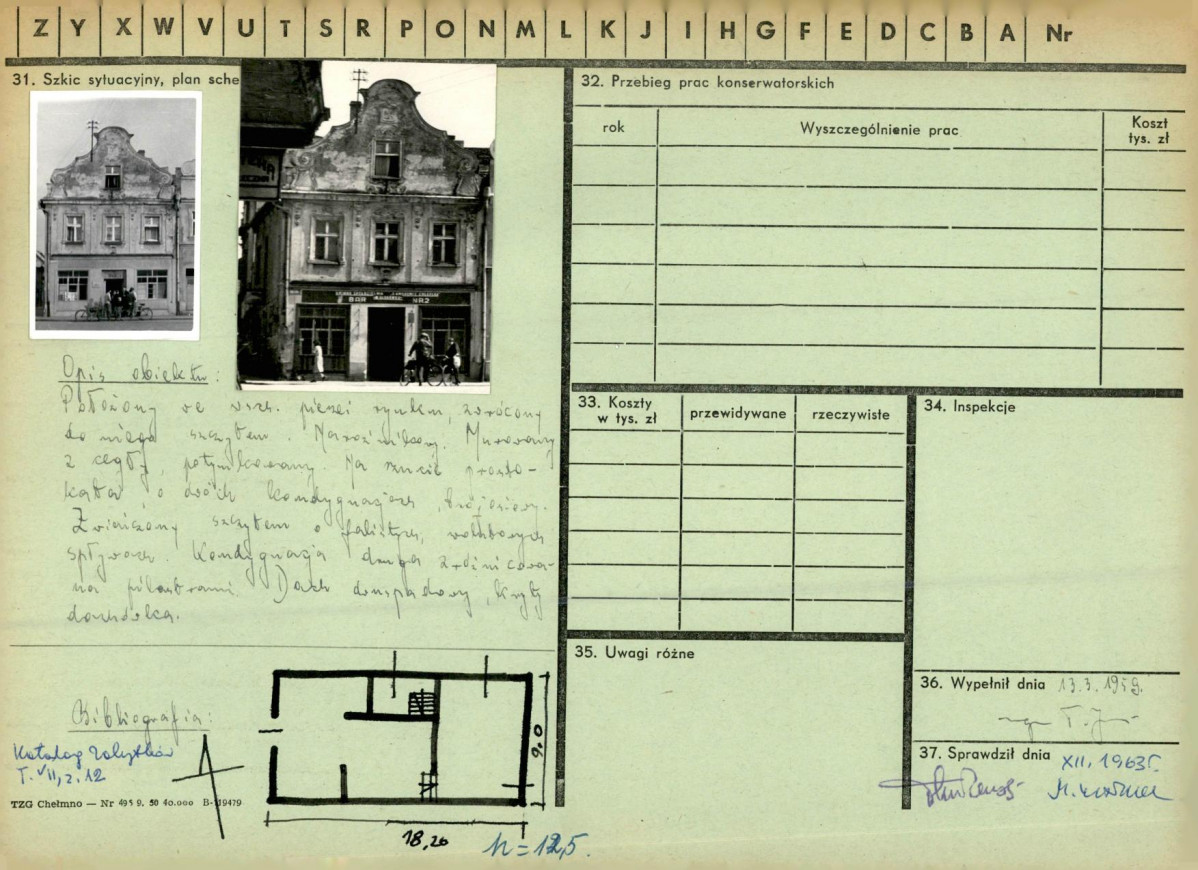 Z Y X W V U T S R P O N M L K J I H G F E D C B A Nr
31. Szkic sytuacyjny, plan sche
BAR NR2
Opis obiektu:
Położony we wsch. pierzei rynku, zwrócony
do niego szczytem. Narożnikowy. Murowany
z cegły, potynkowany. Na rzucie prosto-
kąta o dwóch kondygnacjach, trójosiowy.
Zwieńczony szczytem o falistych, wolutowych
spływach. Kondygnacja druga zróżnicowa-
na pilastrami. Dach dwuspadowy, kryty
dachówką.
Bibliografia:
Katalog Zabytków
T. VII, z. 12
TZG Chełmno — Nr 495 9. 50 40.000 B-19479
9.0
18,20
h = 12,5.
32. Przebieg prac konserwatorskich
rok
Wyszczególnienie prac
Koszt
tys. zł
33. Koszty
w tys. zł
przewidywane
rzeczywiste
34. Inspekcje
35. Uwagi różne
36. Wypełnił dnia 13.3.1959.
mgr T. J
37. Sprawdził dnia XII, 1963 r.